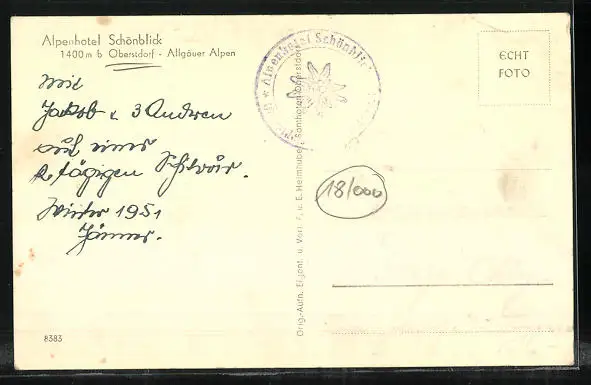 Alpenhotel Schönblick
1400 m b Oberstdorf - Allgäuer Alpen
Mit
Jakob u. 3 Andren
auf eines
tägigen
Winter 1951
Jänner.
8383
Orig.-Aufn. Eigent. u. Verl. F. u. E. Heimhuber, Sonthofen-Oberstdorf
Alpenhotel Schönblick
18/000
ECHT
FOTO